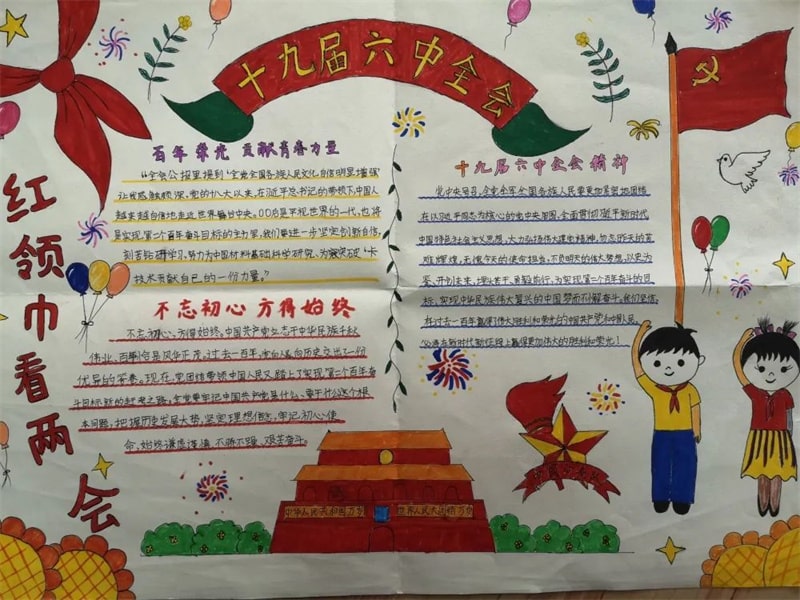 十九届六中全会
红领巾看两会
百年荣光 贡献青春力量
"全会公报里提到'全党全国各族人民文化自信明显增强'
让我感触颇深，党的十八大以来，在习近平总书记的带领下，中国人
越来越自信地走近世界舞台中央。00后是平视世界的一代，也将
是实现第二个百年奋斗目标的主力军，我们要进一步坚定创新自信，
刻苦钻研学习，努力为中国材料基础科学研究、为突破"卡
技术贡献自己的一份力量。"
不忘初心 方得始终
不忘初心，方得始终。中国共产党立志于中华民族千秋
伟业，百年恰是风华正茂。过去一百年，党向人民、向历史交出了一份
优异的答卷。现在，党团结带领中国人民又踏上了实现第二个百年奋
斗目标新的赶考之路。全党要牢记中国共产党是什么、要干什么这个根
本问题，把握历史发展大势，坚定理想信念，牢记初心使
命，始终谦虚谨慎、不骄不躁、艰苦奋斗。
十九届六中全会精神
党中央号召，全党全军全国各族人民要更加紧密地团结
在以习近平同志为核心的党中央周围，全面贯彻习近平新时代
中国特色社会主义思想，大力弘扬伟大建党精神，勿忘昨天的苦
难辉煌，无愧今天的使命担当，不负明天的伟大梦想，以史为
鉴、开创未来，埋头苦干、勇毅前行，为实现第二个百年奋斗目
标、实现中华民族伟大复兴的中国梦而不懈奋斗。我们坚信，
在过去一百年赢得了伟大胜利和荣光的中国共产党和中国人民，
必将在新时代新征程上赢得更加伟大的胜利和荣光！
中华人民共和国万岁
世界人民大团结万岁
中国少先队